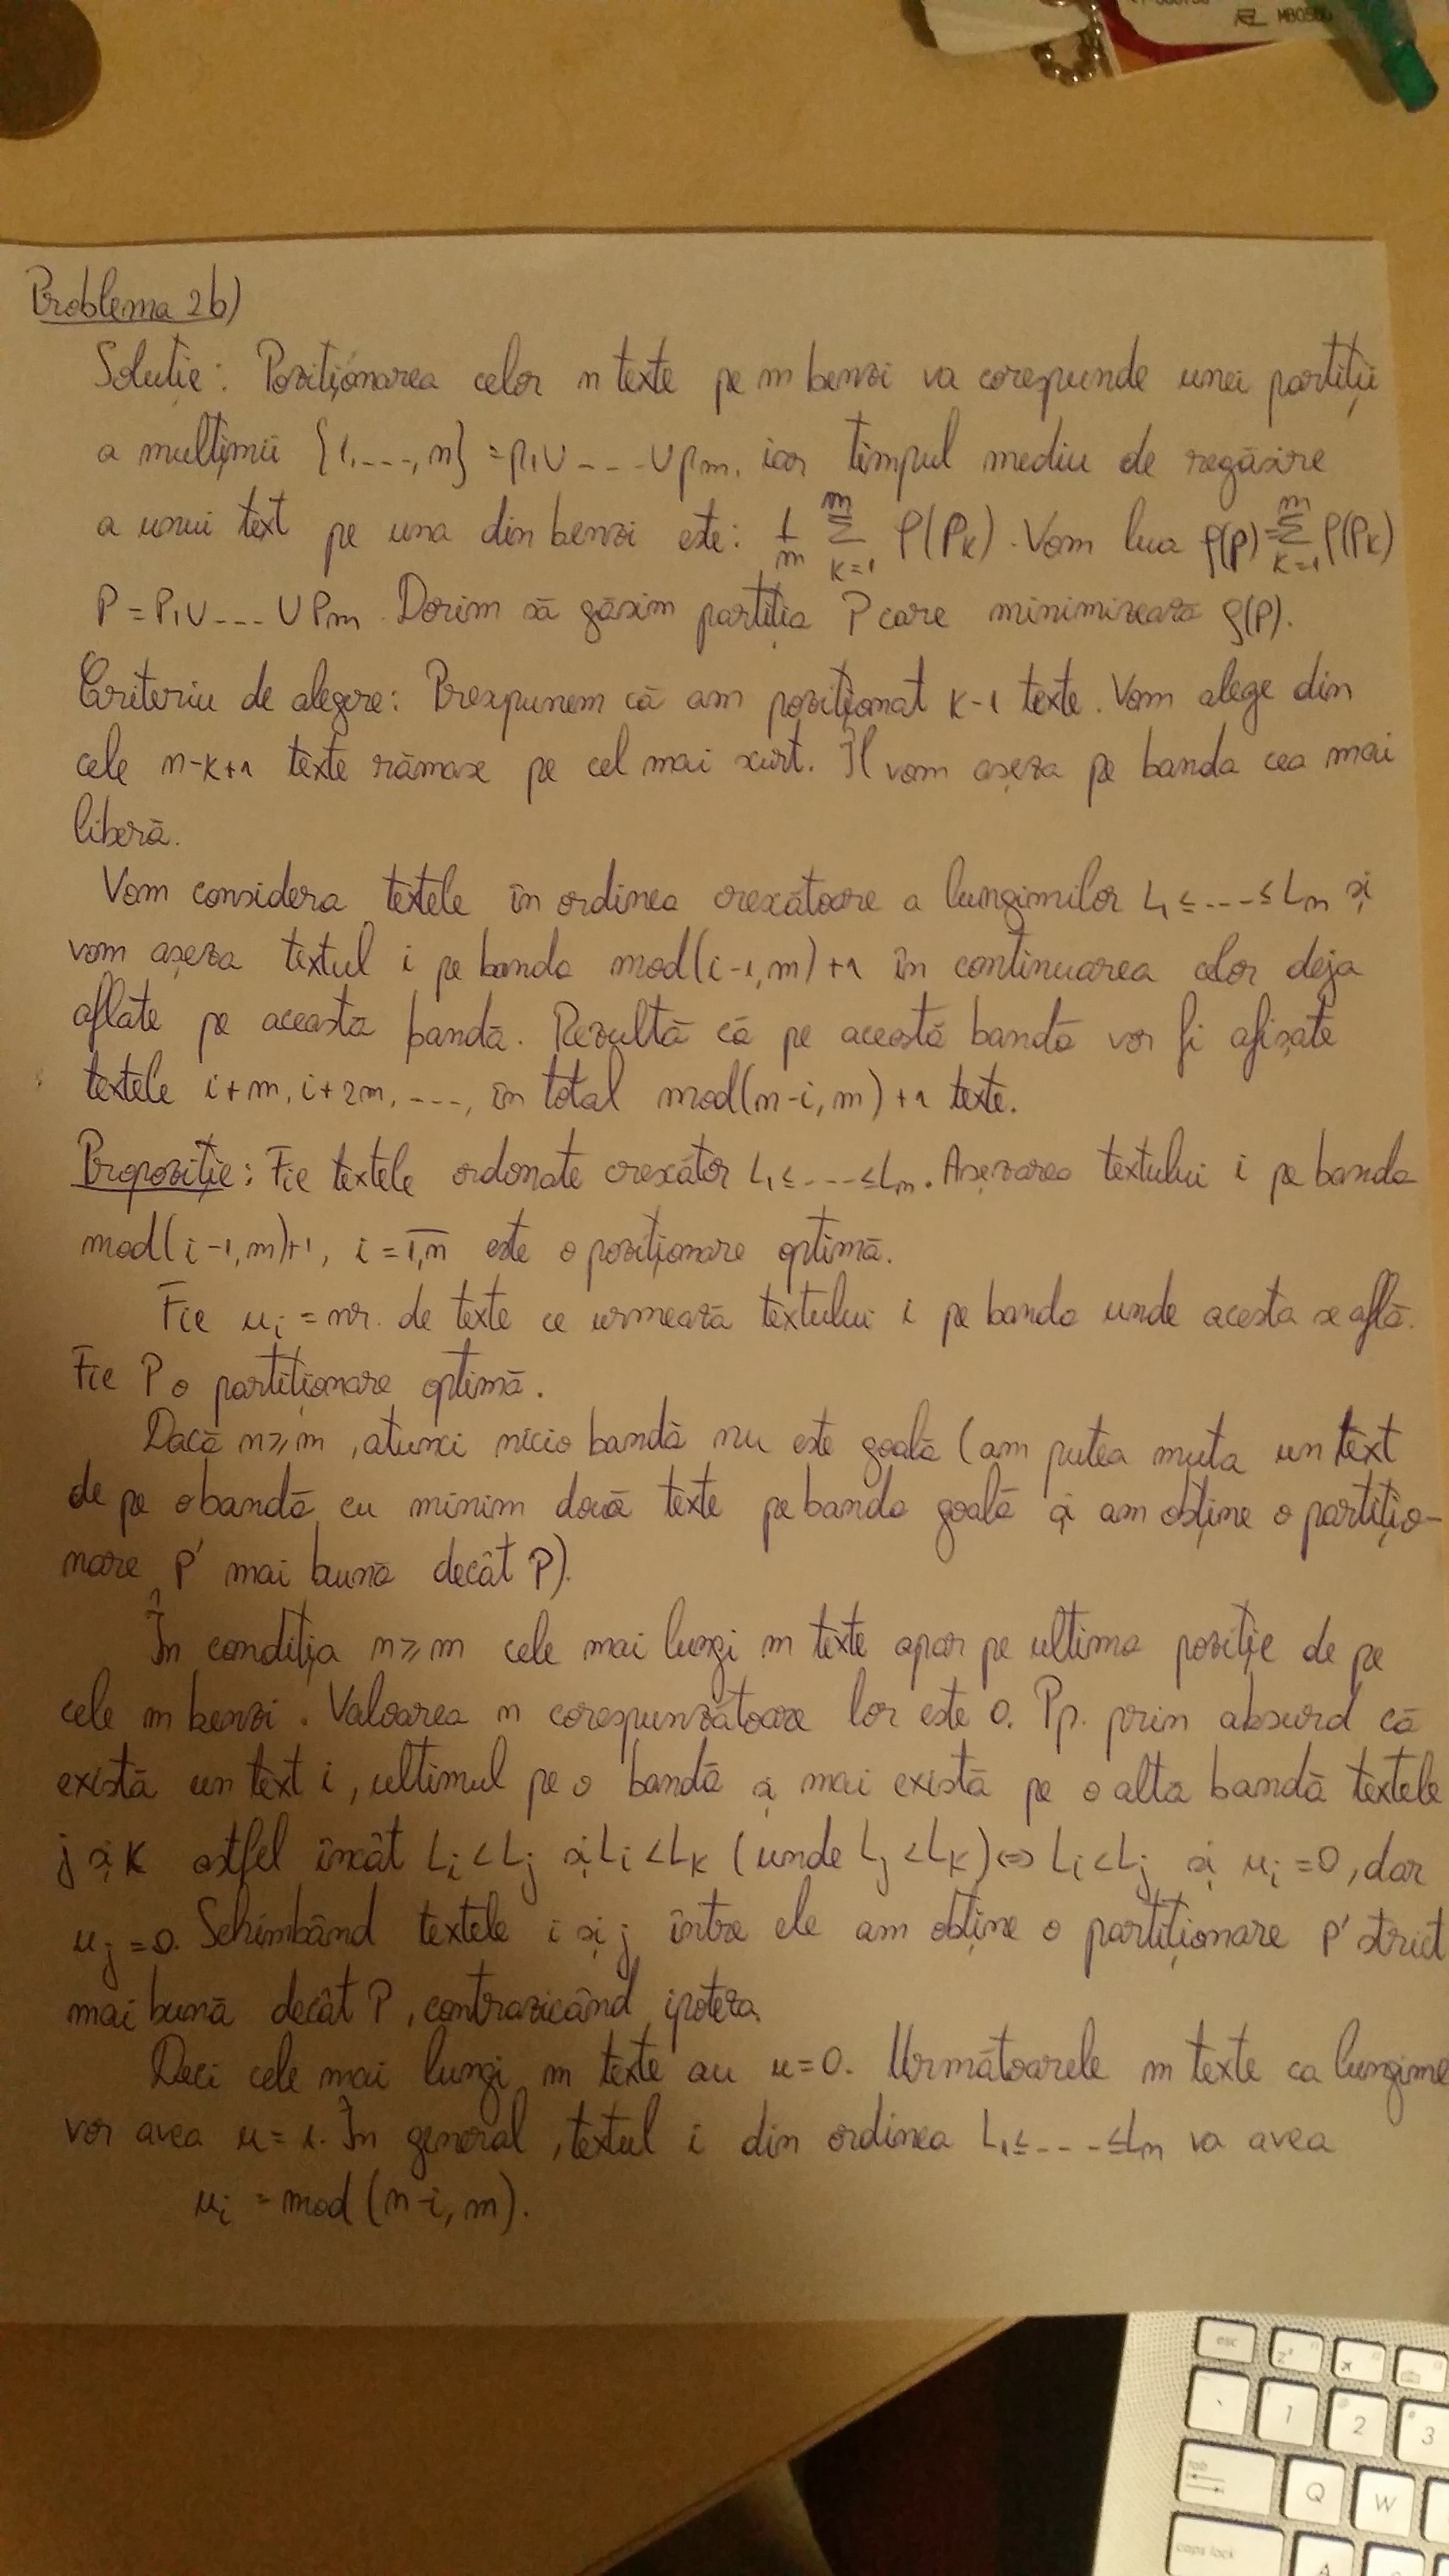 MB0500
Problema 2b)
Soluție: Poziționarea celor n texte pe m benzi va corespunde unei partiții
a mulțimii {1,---,n} = p₁∪---∪pₘ, iar timpul mediu de regăsire
a unui text pe una din benzi este: 1/m ∑ₖ₌₁ᵐ ρ(Pₖ). Vom lua ρ(p)=∑ₖ₌₁ᵐ ρ(Pₖ)
P = P₁∪---∪Pₘ. Dorim să găsim partiția P care minimizează ρ(P).
Criteriu de alegere: Presupunem că am poziționat k-1 texte. Vom alege din
cele n-k+1 texte rămase pe cel mai scurt. Îl vom așeza pe banda cea mai
liberă.
Vom considera textele în ordinea crescătoare a lungimilor L₁≤---≤Lₙ și
vom așeza textul i pe banda mod(i-1,m)+1 în continuarea celor deja
aflate pe această bandă. Rezultă că pe această bandă vor fi afișate
textele i+m, i+2m, ---, în total mod(n-i,m)+1 texte.
Propoziție: Fie textele ordonate crescător L₁≤---≤Lₙ. Așezarea textului i pe banda
mod(i-1,m)+1, i=1,n este o poziționare optimă.
Fie uᵢ = nr. de texte ce urmează textului i pe banda unde acesta se află.
Fie P o partiționare optimă.
Dacă n≥m, atunci nicio bandă nu este goală (am putea muta un text
de pe o bandă cu minim două texte pe banda goală și am obține o partițio-
nare P' mai bună decât P).
În condiția n≥m cele mai lungi m texte apar pe ultima poziție de pe
cele m benzi. Valoarea n corespunzătoare lor este 0. Pp. prin absurd că
există un text i, ultimul pe o bandă și mai există pe o altă bandă textele
j și k astfel încât Lᵢ<Lⱼ și Lᵢ<Lₖ (unde Lⱼ<Lₖ) ⇔ Lᵢ<Lⱼ și uᵢ=0, dar
uⱼ=0. Schimbând textele i și j între ele am obține o partiționare P' strict
mai bună decât P, contrazicând ipoteza.
Deci cele mai lungi m texte au u=0. Următoarele m texte ca lungime
vor avea u=1. În general, textul i din ordinea L₁≤---≤Lₙ va avea
uᵢ = mod(n-i,m).
esc
1
2
3
tab
Q
W
caps lock
A